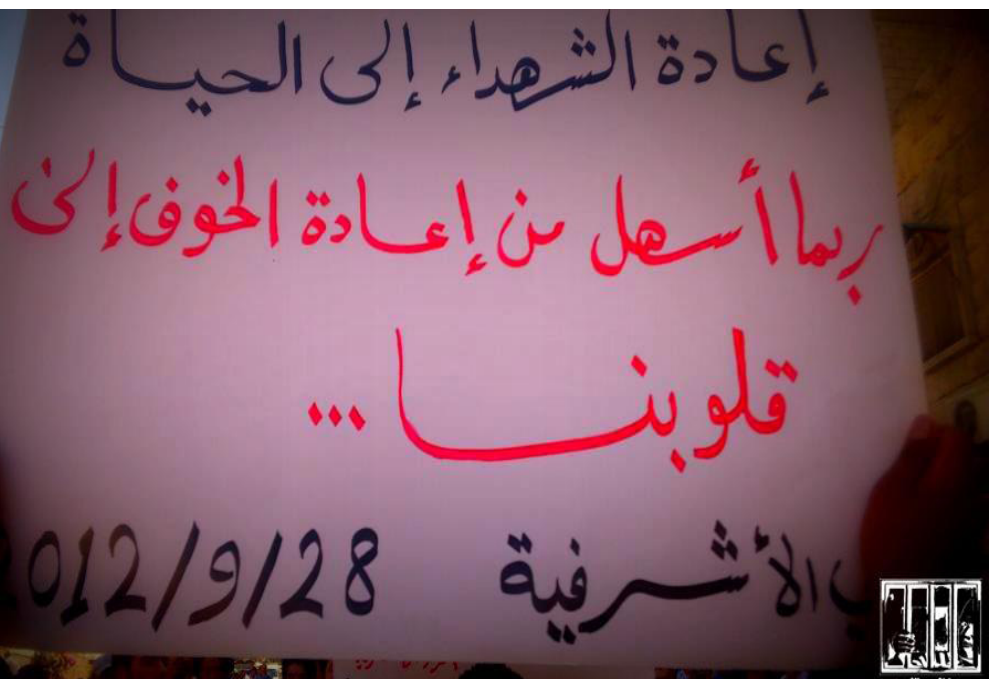 إعادة الشهداء إلى الحياة
ربما أسهل من إعادة الخوف إلى
قلوبنا ...
الأشرفية 012/9/28